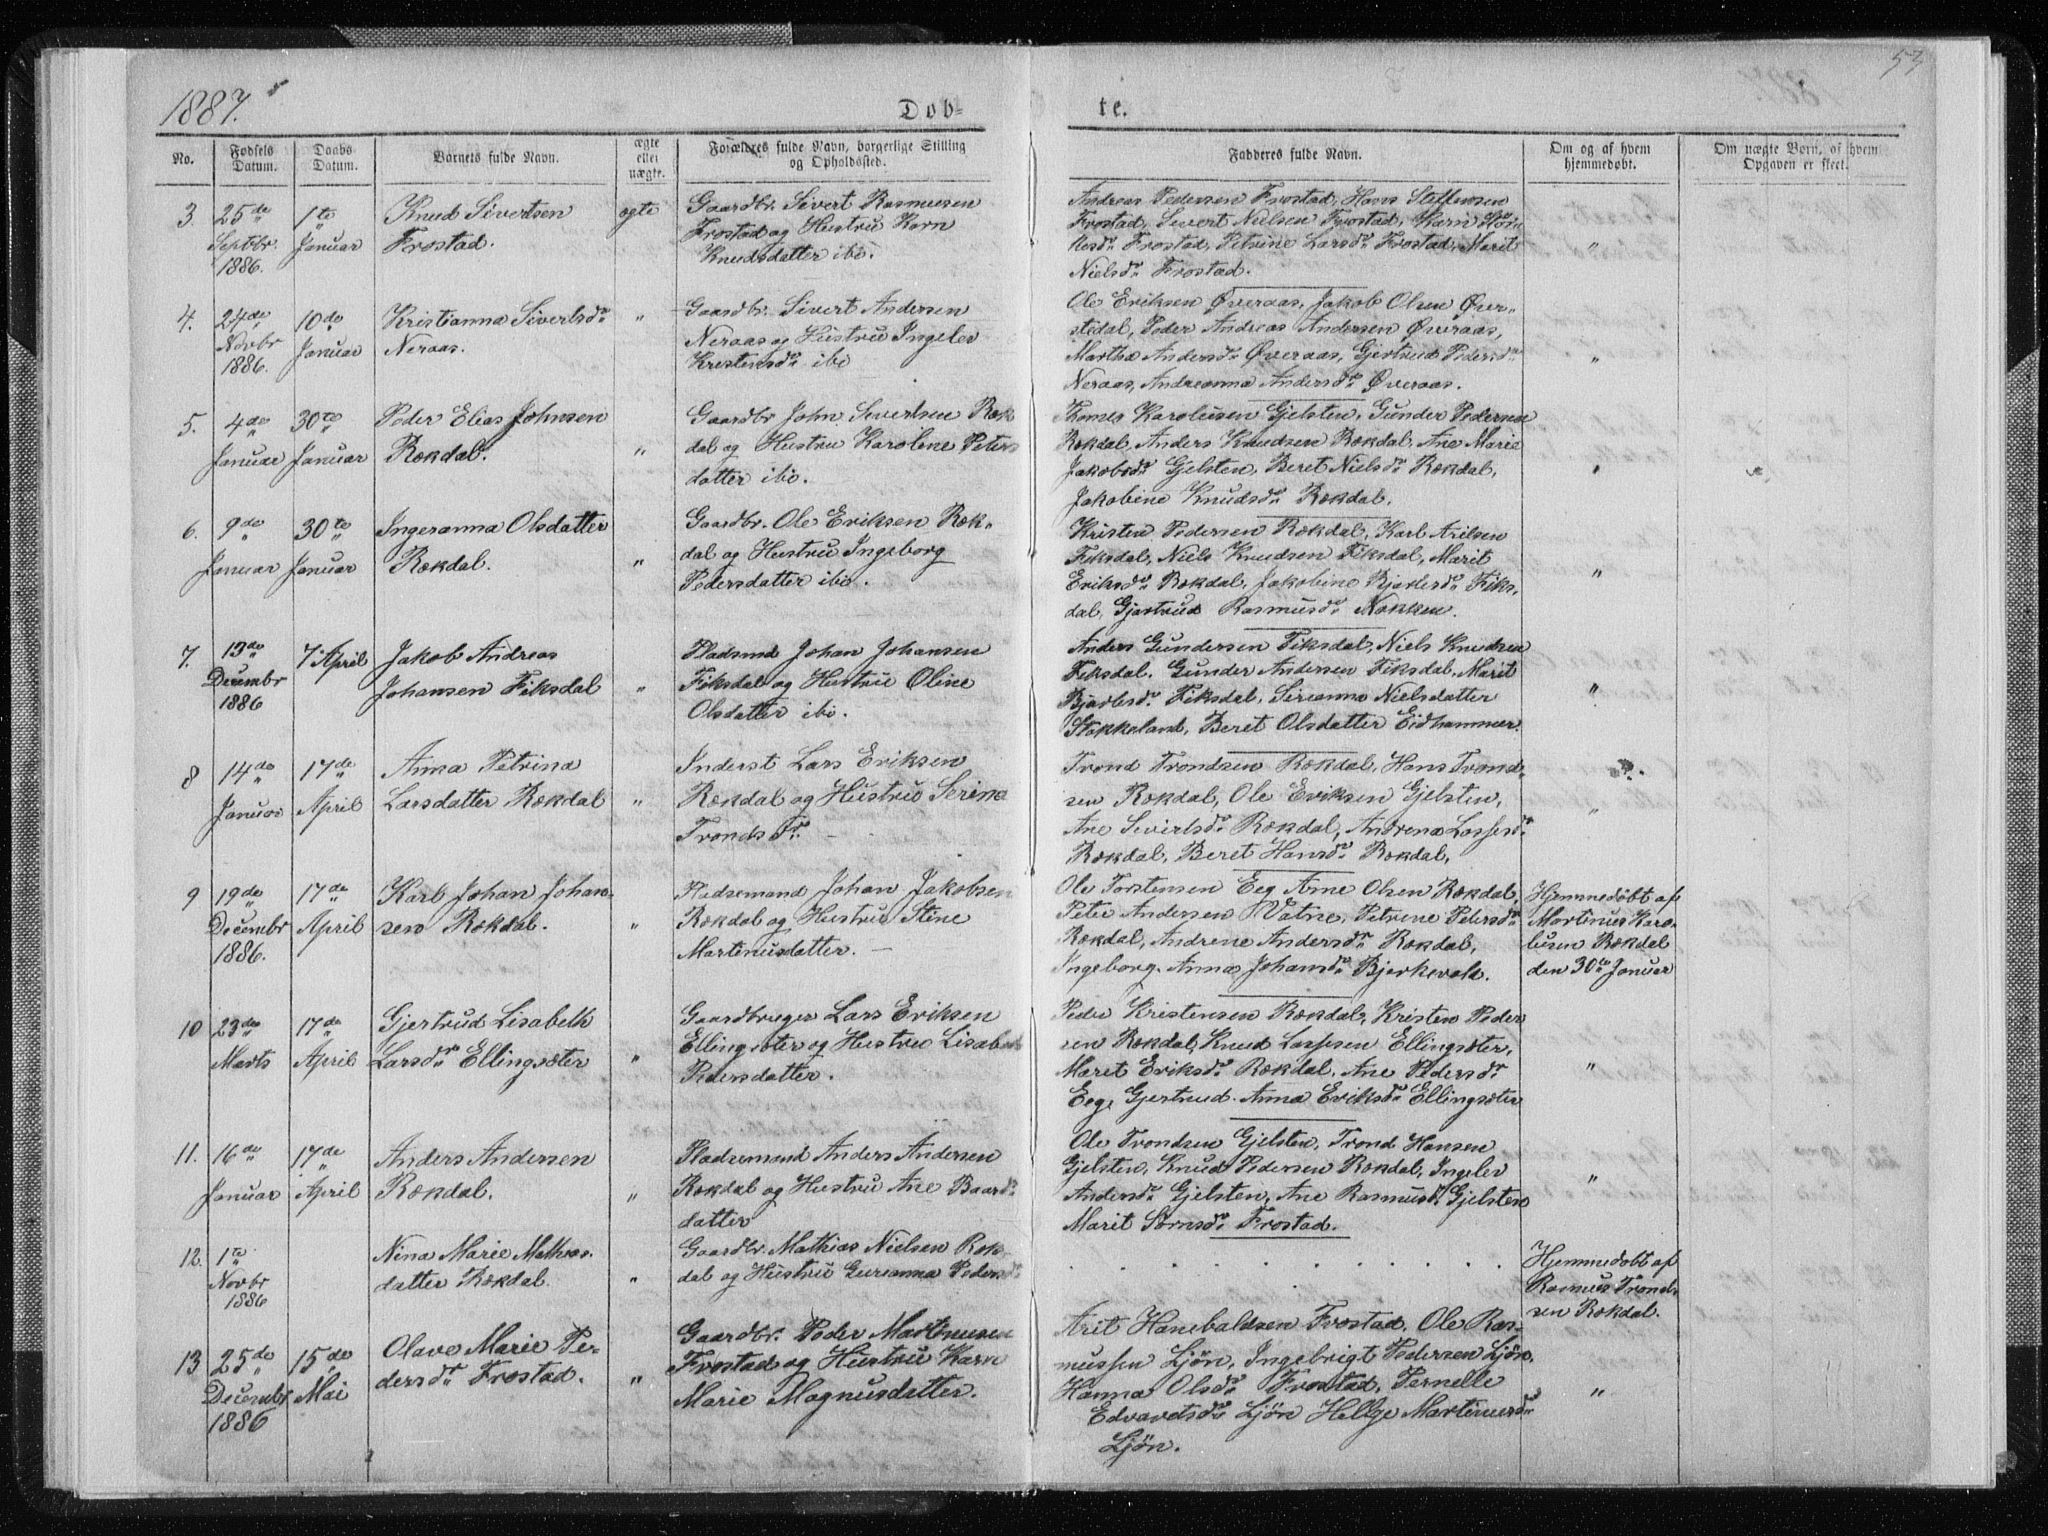 53
1887.
Døb-
te.
No.
Fødsels Datum.
Daabs Datum.
Barnets fulde Navn.
ægte eller uægte.
Forældres fulde Navn, borgerlige Stilling og Opholdssted.
Fadderes fulde Navn.
Om og af hvem hjemmedøbt.
Om uægte Børn, af hvem Opgaven er skeet.
3. 25de Septbr. 1886.
1te Januar
Knud Sivertsen
Frostad.
ægte
Gaardbr. Sivert Rasmussen
Frostad og Hustru Karn
Knudsdatter ibi.
Andreas Pedersen Frostad, Hans Steffensen
Frostad, Sivert Nielsen Frostad, Karn
Frostad, Petrine Larsdr Frostad, Marit
Nielsdr Frostad.
"
4. 24de Novbr 1886.
10de Januar
Kristianna Sivertsdr
Neraas.
"
Gaardbr. Sivert Andersen
Neraas og Hustru Ingeler
Kristensdr ibi
Ole Eriksen Øveraas, Jakob Olsen Øver-
stedal, Peder Andreas Andersen Øveraas,
Martha Andersdr Øveraas, Gjertrud Pedersdr
Neraas, Andreanna Andersdr Øveraas.
"
5. 4de Januar
30te Januar
Peder Elias Johnsen
Rekdal.
"
Gaardbr John Sivertsen Rek
dal og Hustru Karolene Peters
datter ibi.
Thomas Karolusen Gjelsten, Gunder Pedersen
Rekdal, Anders Knudsen Rekdal, Ane Marie
Jakobsdr Gjelsten, Beret Nielsdr Rekdal,
Jakobine Knudsdr Rekdal.
"
6. 9de Januar
30te Januar
Ingeranna Olsdatter
Rekdal.
"
Gaardbr. Ole Eriksen Rek-
dal og Hustru Ingeborg
Pedersdatter ibi.
Kristen Pedersen Rekdal, Karl Arilsen
Fiksdal, Niels Knudsen Fiksdal, Marit
Eriksdr Rekdal, Jakobine Bjarlesdr Fiks-
dal, Gjertrud Rasmusdr Nakken.
"
7. 13de Decembr 1886
7 April
Jakob Andreas
Johansen Fiksdal
"
Pladsmd Johan Johansen
Fiksdal og Hustru Oline
Olsdatter ibi.
Anders Gundersen Fiksdal, Niels Knudsen
Fiksdal, Gunder Andersen Fiksdal, Marit
Bjarlesdr Fiksdal, Serianna Nielsdatter
Stokkeland, Beret Olsdatter Eidhammer.
"
8 14de Januar
17de April
Anna Petrina
Larsdatter Rekdal
"
Inderst Lars Eriksen
Rekdal og Hustru Serina
Trondsdr. –
Trond Trondsen Rekdal, Hans Trond-
sen Rekdal, Ole Eriksen Gjelsten,
Ane Sivertsdr Rekdal, Andrena Lassesdr
Rekdal, Beret Hansdr Rekdal,
"
9 19de Decembr 1886.
17de April
Karl Johan Johan-
sen Rekdal.
"
Pladsemand Johan Jakobsen
Rekdal og Hustru Stine
Martinusdatter. –
Ole Torstensen Eeg Arne Olsen Rekdal,
Peter Andersen Vatne, Petrine Petersdr
Rekdal, Andrene Andersdr Rekdal,
Ingeborg Anna Johansdr Bjerkevold.
Hjemmedøbt af
Martinus Karo-
lusen Rekdal
den 30te Januar
10 23de Marts
17de April
Gjertrud Lisabeth
Larsdr Ellingsæter
"
Gaardbruger Lars Eriksen
Ellingsæter og Hustru Lisabeth
Pedersdatter.
Peder Kristensen Rekdal, Kristen Peder
sen Rekdal, Knud Lassesen Ellingsæter,
Maret Eriksdr Rekdal, Ane Pedersdr
Eeg, Gjertrud Anna Eriksdr Ellingsæter
"
11. 16de Januar
17de April
Anders Andersen
Rekdal.
"
Pladsemand Anders Andersen
Rekdal og Hustru Ane Baards
datter
Ole Trondsen Gjelsten, Trond Hansen
Gjelsten, Knud Pedersen Rekdal, Ingeler
Andersdr Gjelsten, Ane Rasmusdr Gjelsten
Marit Sørnsdr Frostad.
"
12. 1te Novbr 1886
Nina Marie Mathias-
datter Rekdal.
"
Gaardbr. Mathias Nielsen Rek-
dal og Hustru Gurianna Pedersdr
. . . . . . . . . . .
Hjemmedøbt af
Rasmus Trond-
sen Rekdal.
13 25de Decembr 1886
15de Mai
Olave Marie Pe-
dersdr Frostad.
"
Gaardbr. Peder Martinusen
Frostad og Hustru Karn
Marie Magnusdatter.
Arit Hanibaldsen Frostad, Ole Ras-
mussen Ljøn, Ingebrigt Pedersen Ljøn,
Hanna Olsdr Frostad, Pernelle
Edvardsdr Ljøn Helge Martinusdr
Ljøn.
"